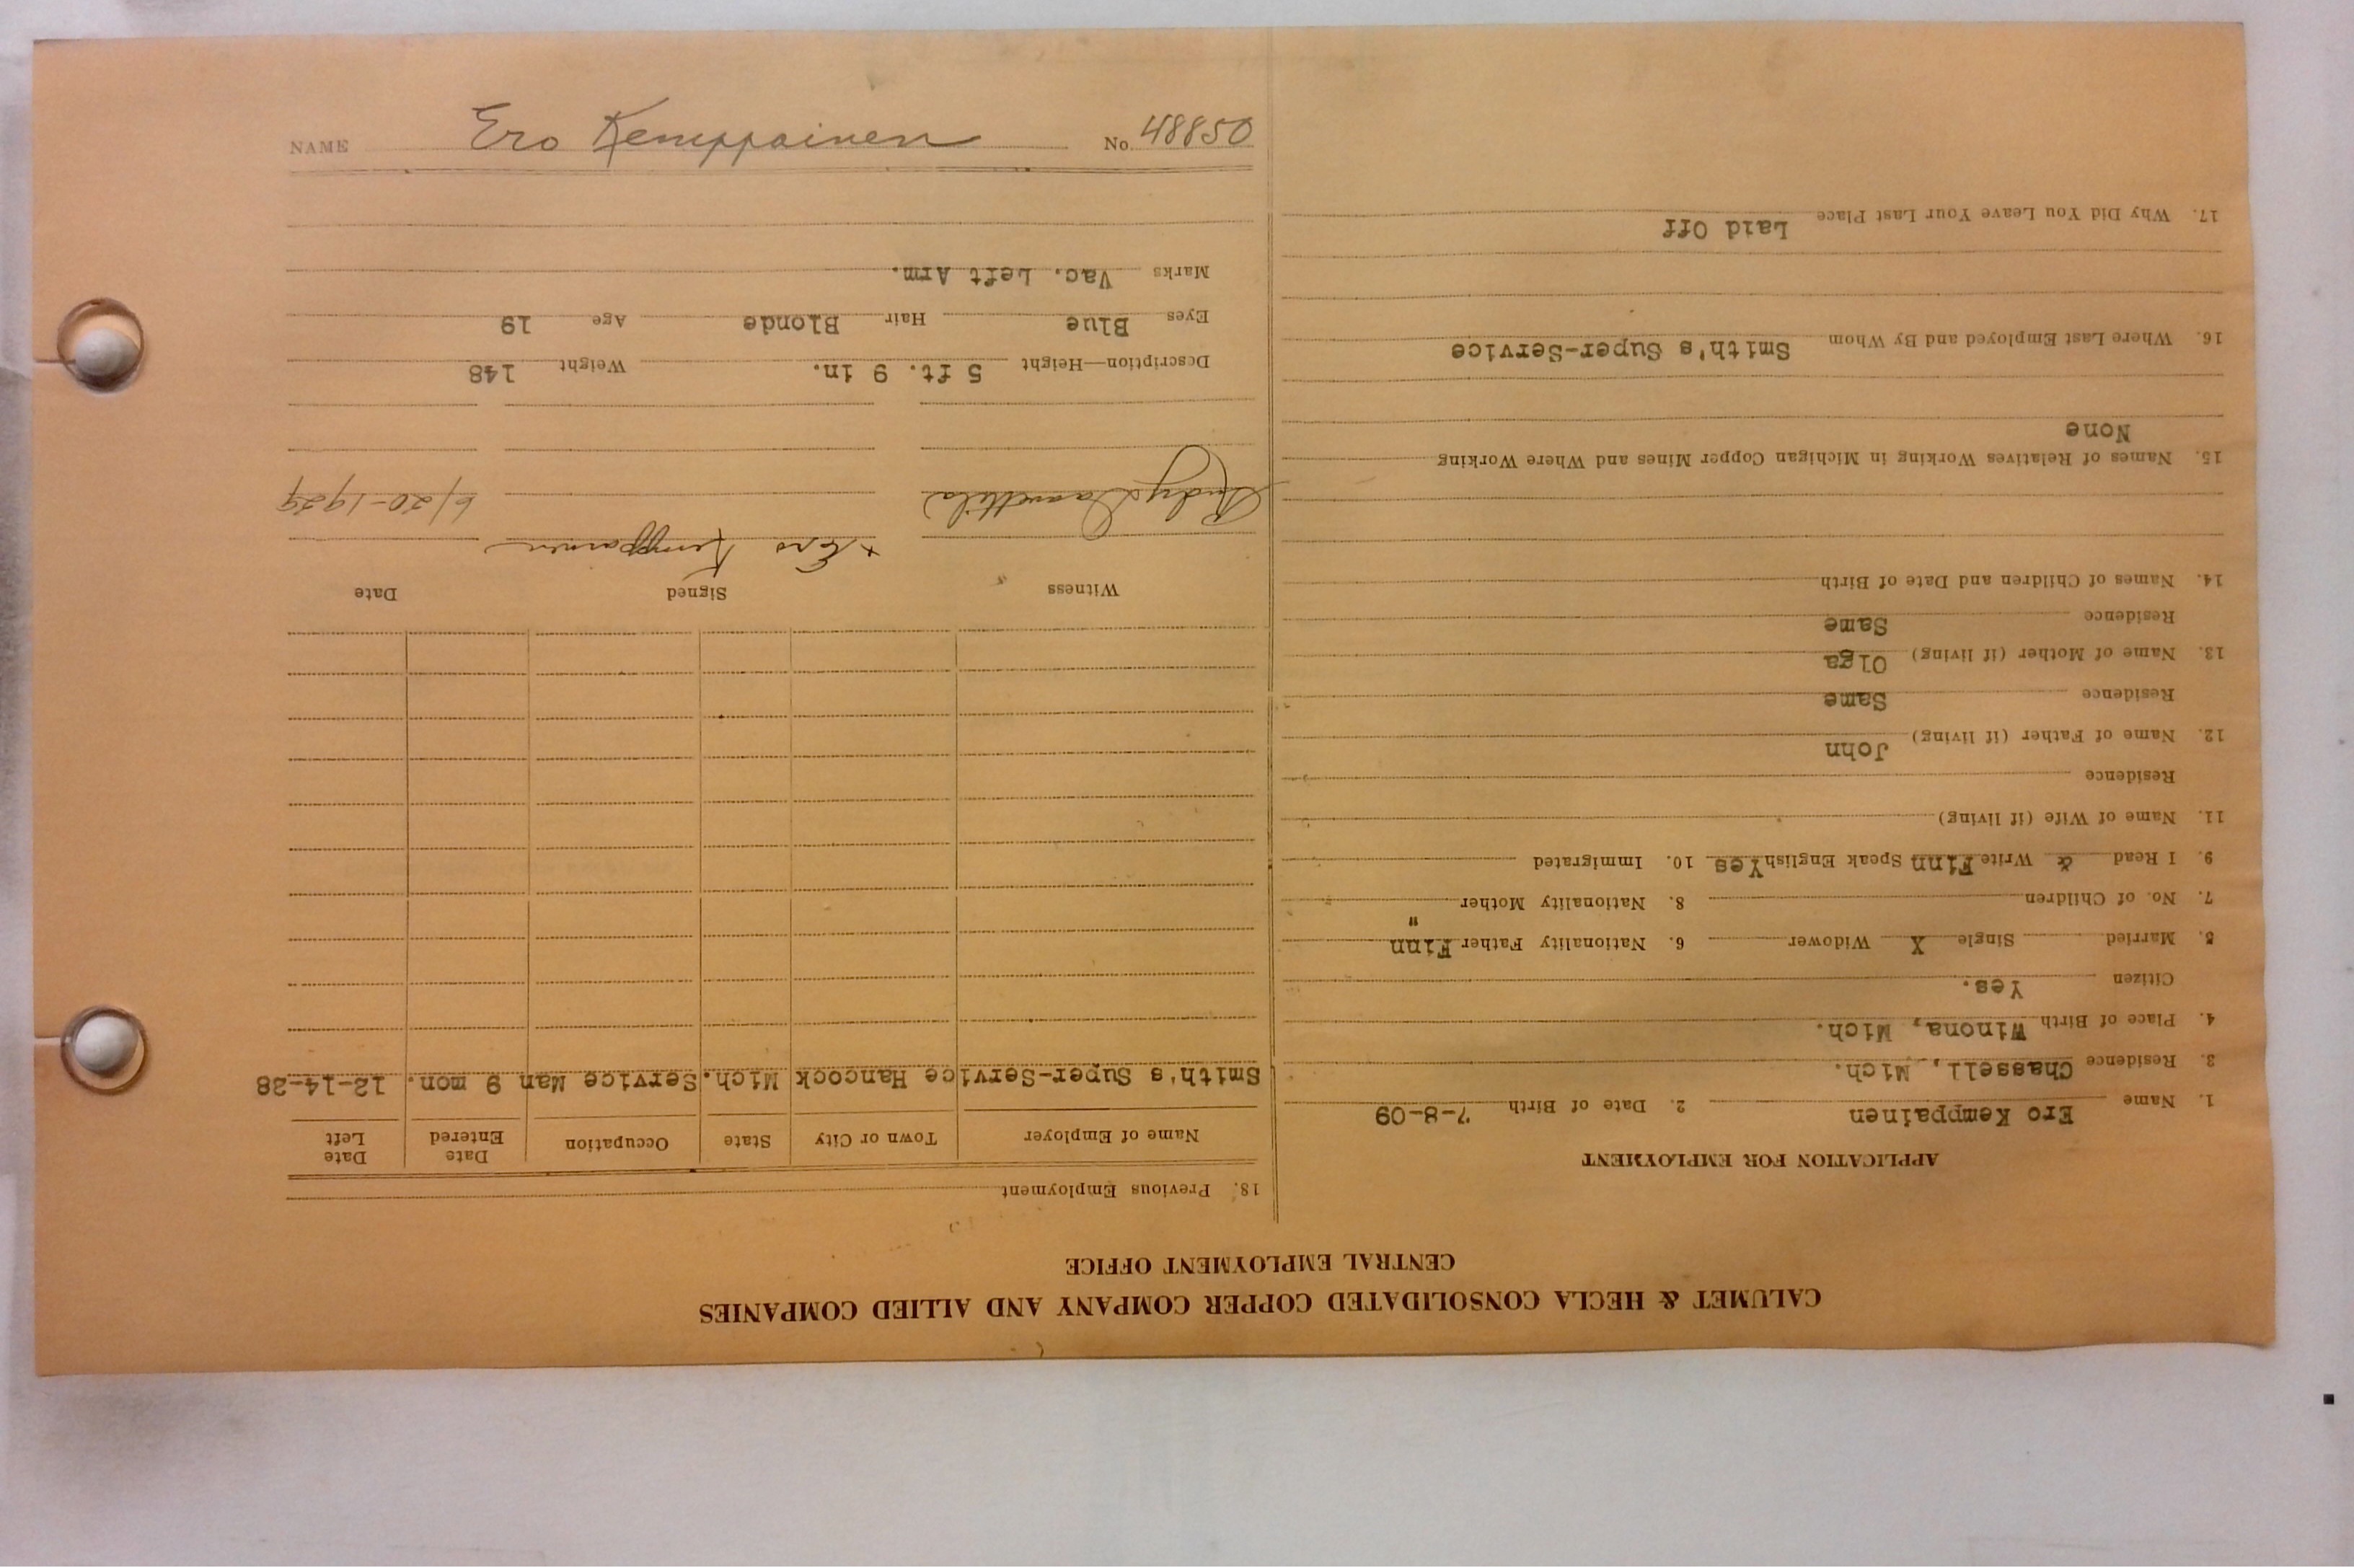 NAME Ero Kemppainen No. 48850
CALUMET & HECLA CONSOLIDATED COPPER COMPANY AND ALLIED COMPANIES
CENTRAL EMPLOYMENT OFFICE
APPLICATION FOR EMPLOYMENT
1. Name Ero Kemppainen 2. Date of Birth 7-8-09
3. Residence Chassell, Mich.
4. Place of Birth Winona, Mich.
Citizen Yes.
5. Married Single X Widower 6. Nationality Father Finn
7. No. of Children 8. Nationality Mother "
9. I Read & Write Finn Speak English Yes 10. Immigrated
11. Name of Wife (if living)
Residence
12. Name of Father (if living) John
Residence Same
13. Name of Mother (if living) Olga
Residence Same
14. Names of Children and Date of Birth
15. Names of Relatives Working in Michigan Copper Mines and Where Working
None
16. Where Last Employed and By Whom Smith's Super-Service
17. Why Did You Leave Your Last Place Laid Off
18. Previous Employment
Name of Employer Town or City State Occupation Date Entered Date Left
Smith's Super-Service Hancock Mich. Service Man 9 mon. 12-14-28
Witness Signed Date
x Ero Kemppainen
Andy 6/20-1929
Description—Height 5 ft. 9 in. Weight 148
Eyes Blue Hair Blonde Age 19
Marks Vac. Left Arm.